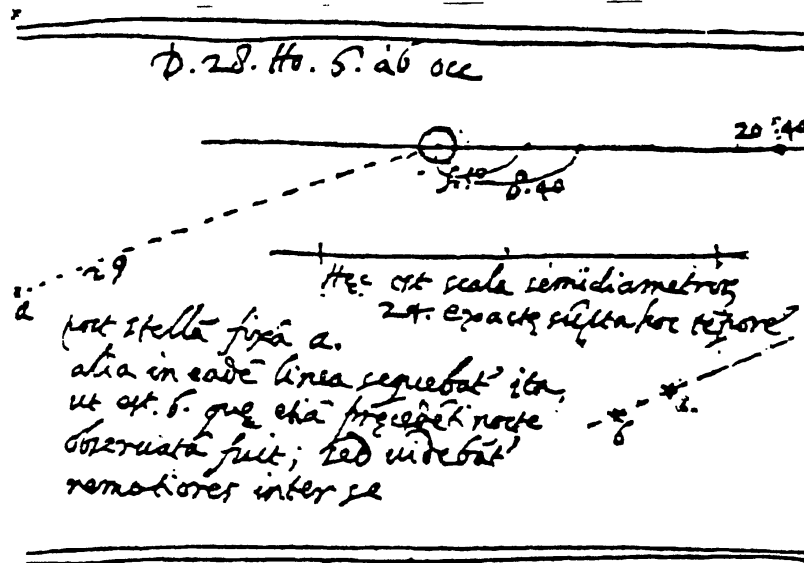 D. 28. Ho. 6. ab occ
20 : 40
8. 40
a
Hęc est scala semidiametros
24. exactę sūpta hoc tēpore
post stellā fixā a.
alia in eadē linea sequebat' ita,
ut est. b. quę etiā pręcedēti nocte
obseruata fuit; sed uidebāt'
remotiores inter se
b